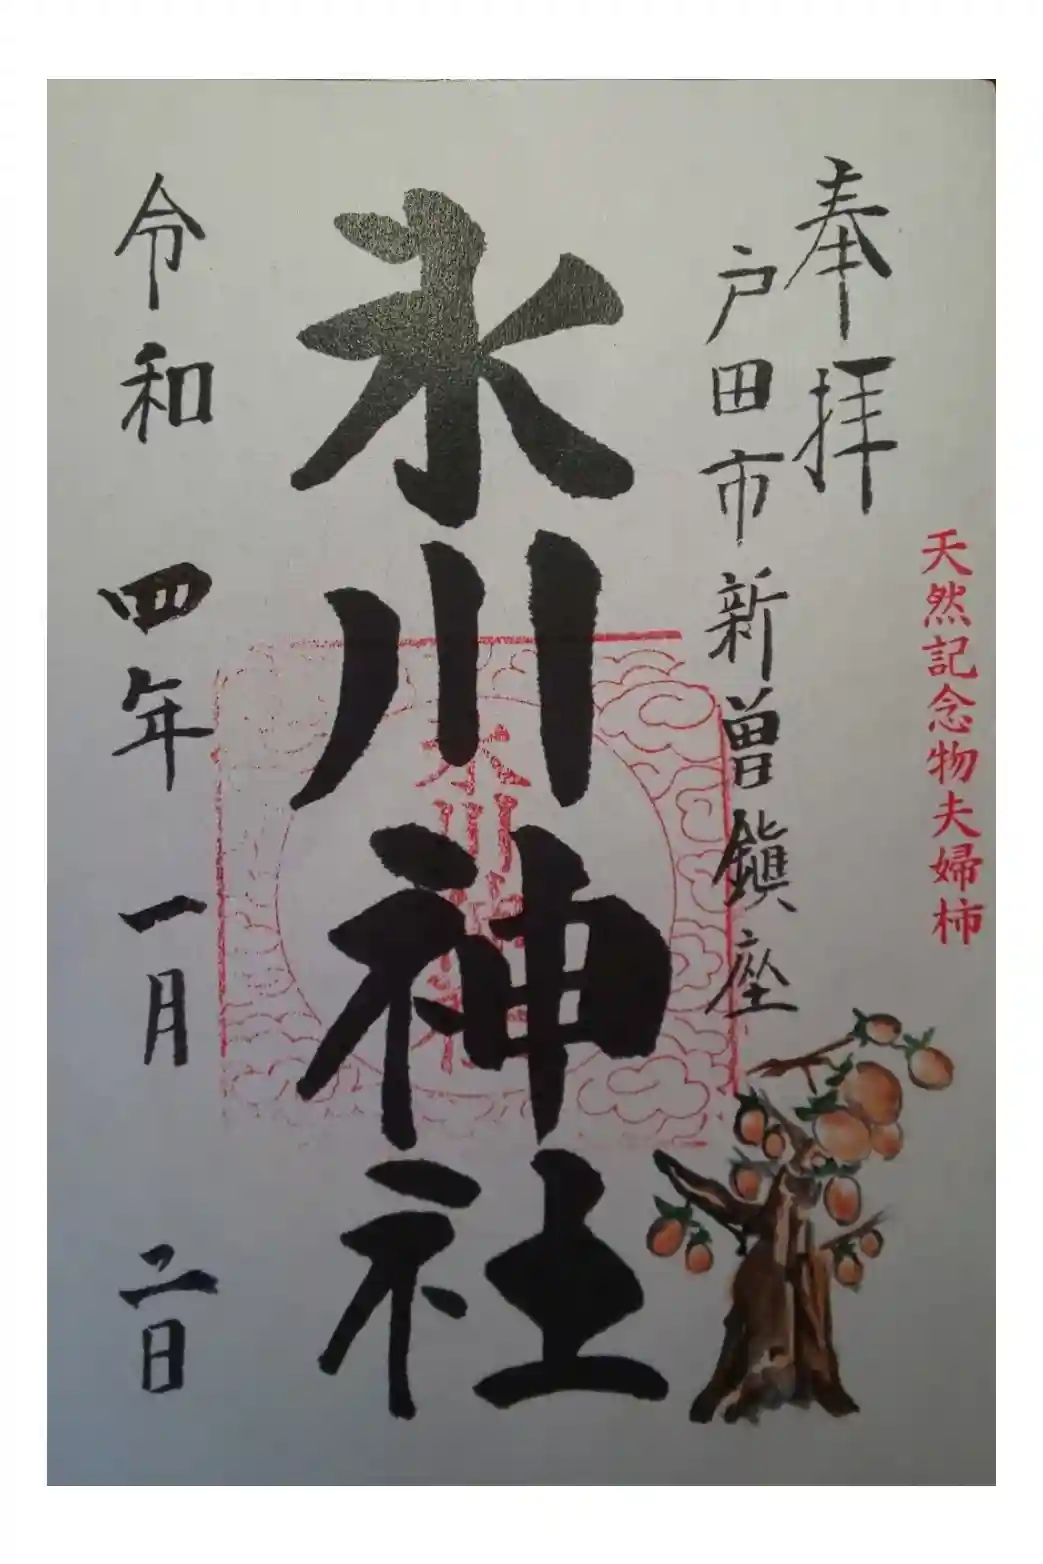 天然記念物夫婦柿
奉拝
戸田市新曽鎮座
氷川神社
氷川神社
令和四年一月二日